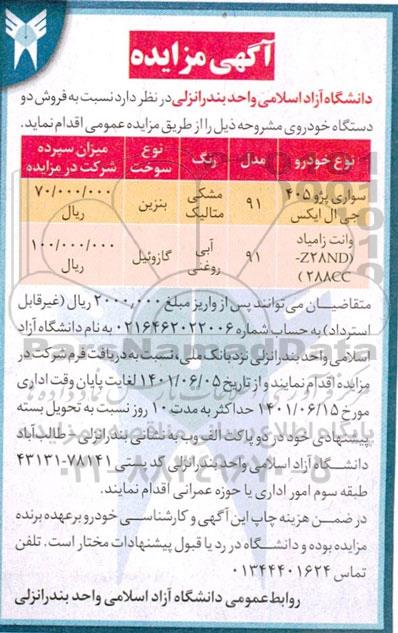 آگهی مزایده
دانشگاه آزاد اسلامی واحد بندرانزلی در نظر دارد نسبت به فروش دو
دستگاه خودروی مشروحه ذیل را از طریق مزایده عمومی اقدام نماید.
نوع خودرو مدل رنگ نوع سوخت میزان سپرده شرکت در مزایده
سواری پژو ۴۰۵ جی ال ایکس ۹۱ مشکی متالیک بنزین ۷۰/۰۰۰/۰۰۰ ریال
وانت زامیاد (Z۲۸ND-۲۸۸CC) ۹۱ آبی روغنی گازوئیل ۱۰۰/۰۰۰/۰۰۰ ریال
متقاضیان می توانند پس از واریز مبلغ ۲۰۰۰,۰۰۰ ریال (غیرقابل
استرداد) به حساب شماره ۰۲۱۶۴۶۲۰۲۲۰۰۶ به نام دانشگاه آزاد
اسلامی واحد بندرانزلی نزد بانک ملی، نسبت به دریافت فرم شرکت در
مزایده اقدام نمایند و از تاریخ ۱۴۰۱/۰۶/۰۵ لغایت پایان وقت اداری
مورخ ۱۴۰۱/۰۶/۱۵ حداکثر به مدت ۱۰ روز نسبت به تحویل بسته
پیشنهادی خود در دو پاکت الف و ب به نشانی بندرانزلی - طالب آباد
دانشگاه آزاد اسلامی واحد بندرانزلی کد پستی ۷۸۱۴۱-۴۳۱۳۱
طبقه سوم امور اداری یا حوزه عمرانی اقدام نمایند.
در ضمن هزینه چاپ این آگهی و کارشناسی خودرو بر عهده برنده
مزایده بوده و دانشگاه در رد یا قبول پیشنهادات مختار است. تلفن
تماس ۰۱۳۴۴۴۰۱۶۲۴
روابط عمومی دانشگاه آزاد اسلامی واحد بندرانزلی
ParsNamadData
۰۲۱-۸۸۳۴۹۶۷۰-۵